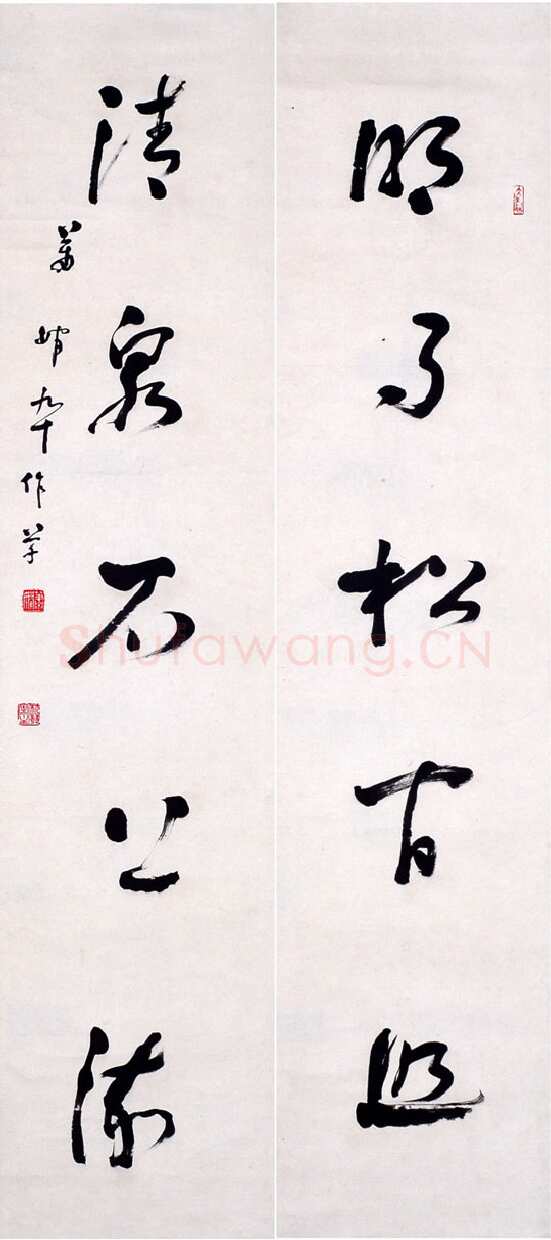 明月松间照
清泉石上流
萧娴九十作草
Shufawang.CN